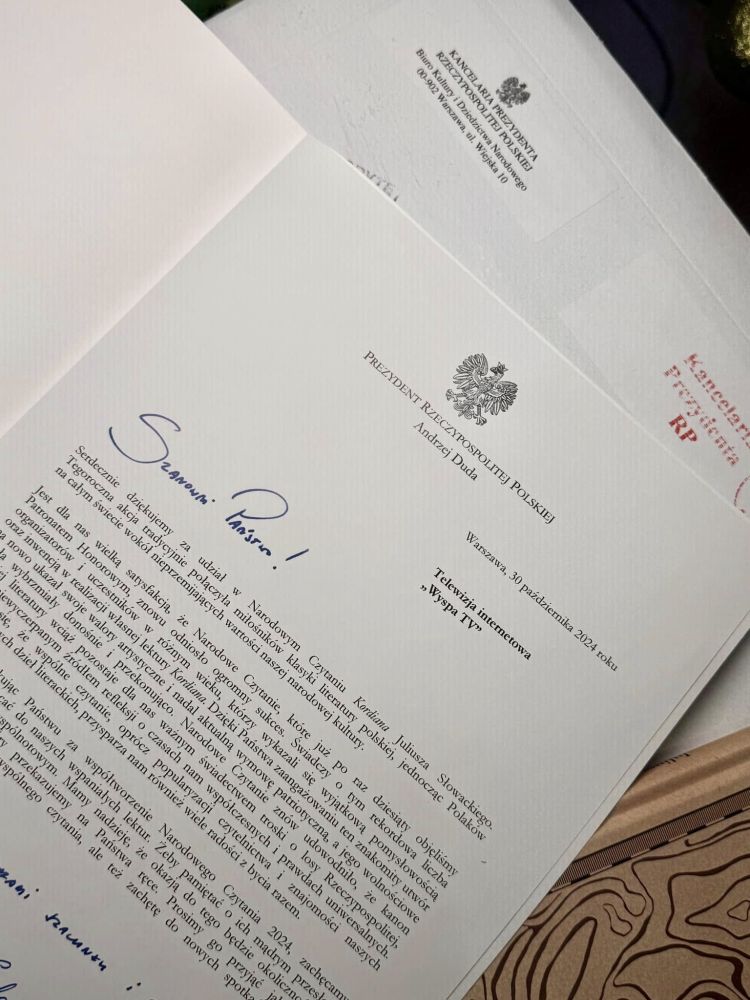 KANCELARIA PREZYDENTA
RZECZYPOSPOLITEJ POLSKIEJ
Biuro Kultury i Dziedzictwa Narodowego
00-902 Warszawa, ul. Wiejska 10
Kancelaria
Prezydenta
RP
PREZYDENT RZECZYPOSPOLITEJ POLSKIEJ
Andrzej Duda
Warszawa, 30 października 2024 roku
Telewizja internetowa
„Wyspa TV”
Szanowni Państwo!
Serdecznie dziękujemy za udział w Narodowym Czytaniu Kordiana Juliusza Słowackiego.
Tegoroczna akcja tradycyjnie połączyła miłośników klasyki literatury polskiej, jednocząc Polaków
na całym świecie wokół nieprzemijających wartości naszej narodowej kultury.
Jest dla nas wielką satysfakcją, że Narodowe Czytanie, które już po raz dziesiąty objęliśmy
Patronatem Honorowym, znowu odniosło ogromny sukces. Świadczy o tym rekordowa liczba
organizatorów i uczestników w różnym wieku, którzy wykazali się wyjątkową pomysłowością
oraz inwencją w realizacji własnej lektury Kordiana. Dzięki Państwa zaangażowaniu ten znakomity utwór
na nowo ukazał swoje walory artystyczne i nadal aktualną wymowę patriotyczną, a jego wolnościowe
wybrzmiały donośnie i przekonująco. Narodowe Czytanie znów udowodniło, że kanon
literatury wciąż pozostaje dla nas ważnym świadectwem troski o losy Rzeczypospolitej,
niewyczerpanym źródłem refleksji o czasach nam współczesnych i prawdach uniwersalnych.
się, że wspólne czytanie, oprócz popularyzacji czytelnictwa i znajomości naszych
dzieł literackich, przysparza nam również wiele radości z bycia razem.
Państwu za współtworzenie Narodowego Czytania 2024, zachęcamy
do naszych wspaniałych lektur. Żeby pamiętać o ich mądrym
wspólnotowym. Mamy nadzieję, że okazją do tego będzie
przekazujemy na Państwa ręce. Prosimy go przyjąć
wspólnego czytania, ale też zachętę do nowych